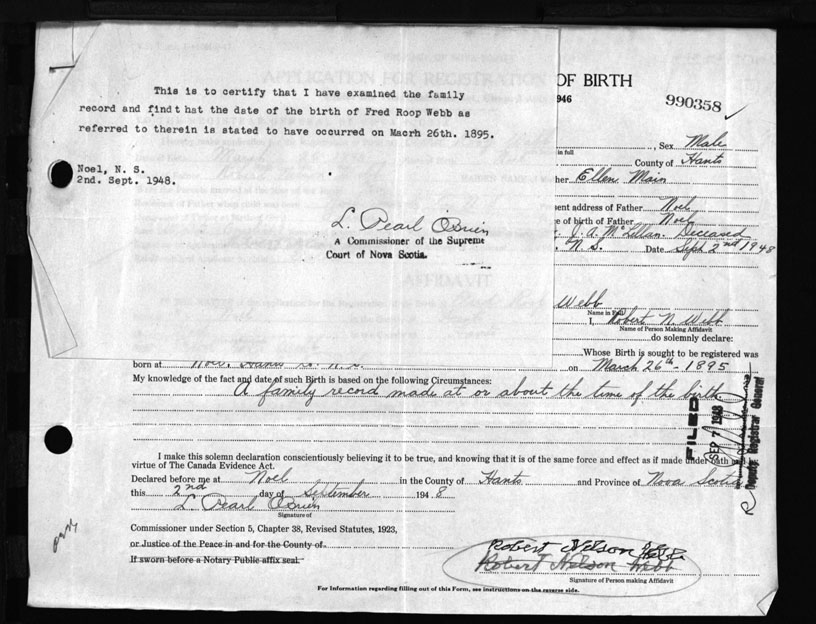 This is to certify that I have examined the family
record and find t hat the date of the birth of Fred Roop Webb as
referred to therein is stated to have occurred on Macrh 26th. 1895.
Noel, N. S.
2nd. Sept. 1948.
L. Pearl O'Brien
A Commissioner of the Supreme
Court of Nova Scotia.
APPLICATION FOR REGISTRATION OF BIRTH
946
990358
, Sex Male
in full
County of Hants
her Ellen Main
sent address of Father Noel
e of birth of Father Noel
J. A. McLellan. Deceased
N. S. Date Sept 2nd 1948
AFFIDAVIT
Webb
Name in Full
I, Robert N. Webb
Name of Person Making Affidavit
do solemnly declare:
Whose Birth is sought to be registered was
born at Noel, Hants Co. N. S. on March 26th - 1895
My knowledge of the fact and date of such Birth is based on the following Circumstances:
A family record made at or about the time of the birth
I make this solemn declaration conscientiously believing it to be true, and knowing that it is of the same force and effect as if made under oath and by
virtue of The Canada Evidence Act.
Declared before me at Noel in the County of Hants and Province of Nova Scotia
this 2nd day of September 1948
L. Pearl O'Brien
Signature of
Commissioner under Section 5, Chapter 38, Revised Statutes, 1923,
or Justice of the Peace in and for the County of
If sworn before a Notary Public affix seal.
Robert Nelson Webb
Robert Nelson Webb
Signature of Person making Affidavit
For Information regarding filling out of this Form, see instructions on the reverse side.
FILED
SEP 7 1948
Deputy Registrar General